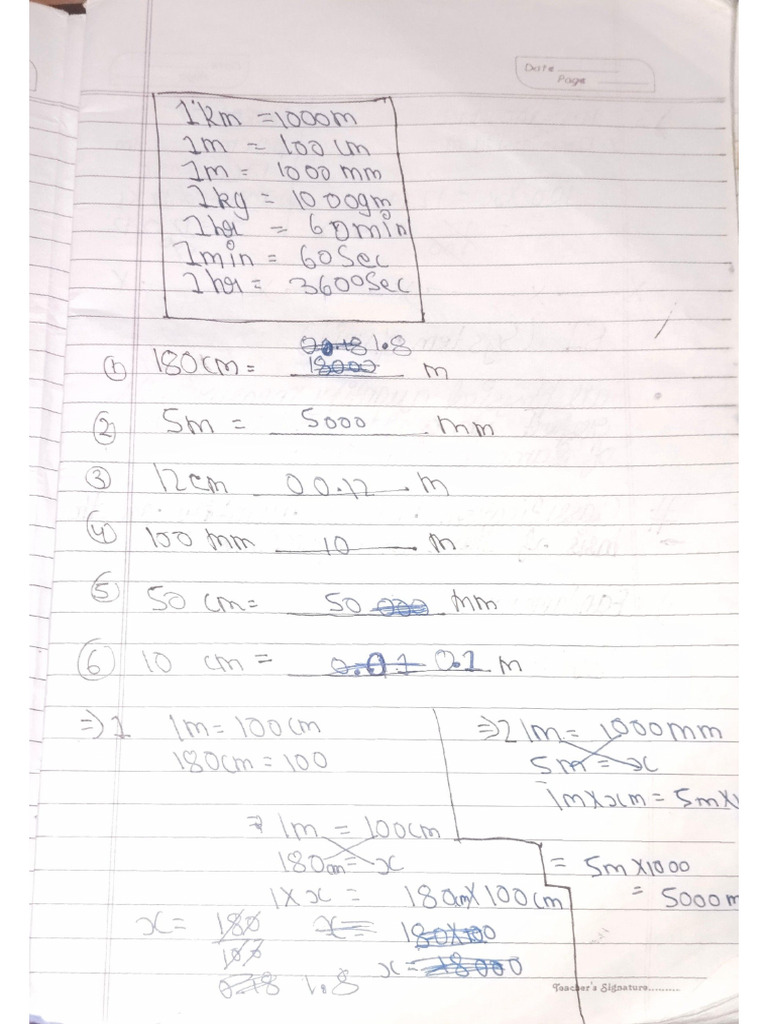 Date
Page
1km = 1000m
1m = 100 cm
1m = 1000 mm
1kg = 1000gm
1hr = 60min
1min = 60Sec
1hr = 3600Sec
1.8
① 180cm = 18000 m
② 5m = 5000 mm
③ 12cm 00.12 m
④ 100 mm 10 m
⑤ 50 cm = 50 000 mm
⑥ 10 cm = 0.01 0.1 m
⇒ 1 1m = 100cm
180cm = 100
1m = 100cm
180cm = x
1 X x = 180cm X 100cm
x = 180 x = 180X100
100 x = 18000
0.18 1.8
⇒ 2 1m = 1000mm
5m = x
1m X xm = 5m X
= 5m X 1000
= 5000m
Teacher's Signature.........